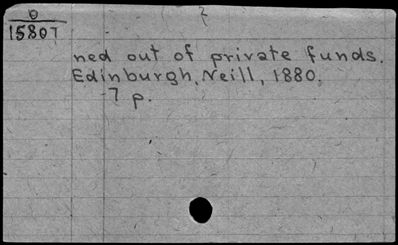 0
15807
ned out of private funds.
Edinburgh, Neill, 1880.
7 p.